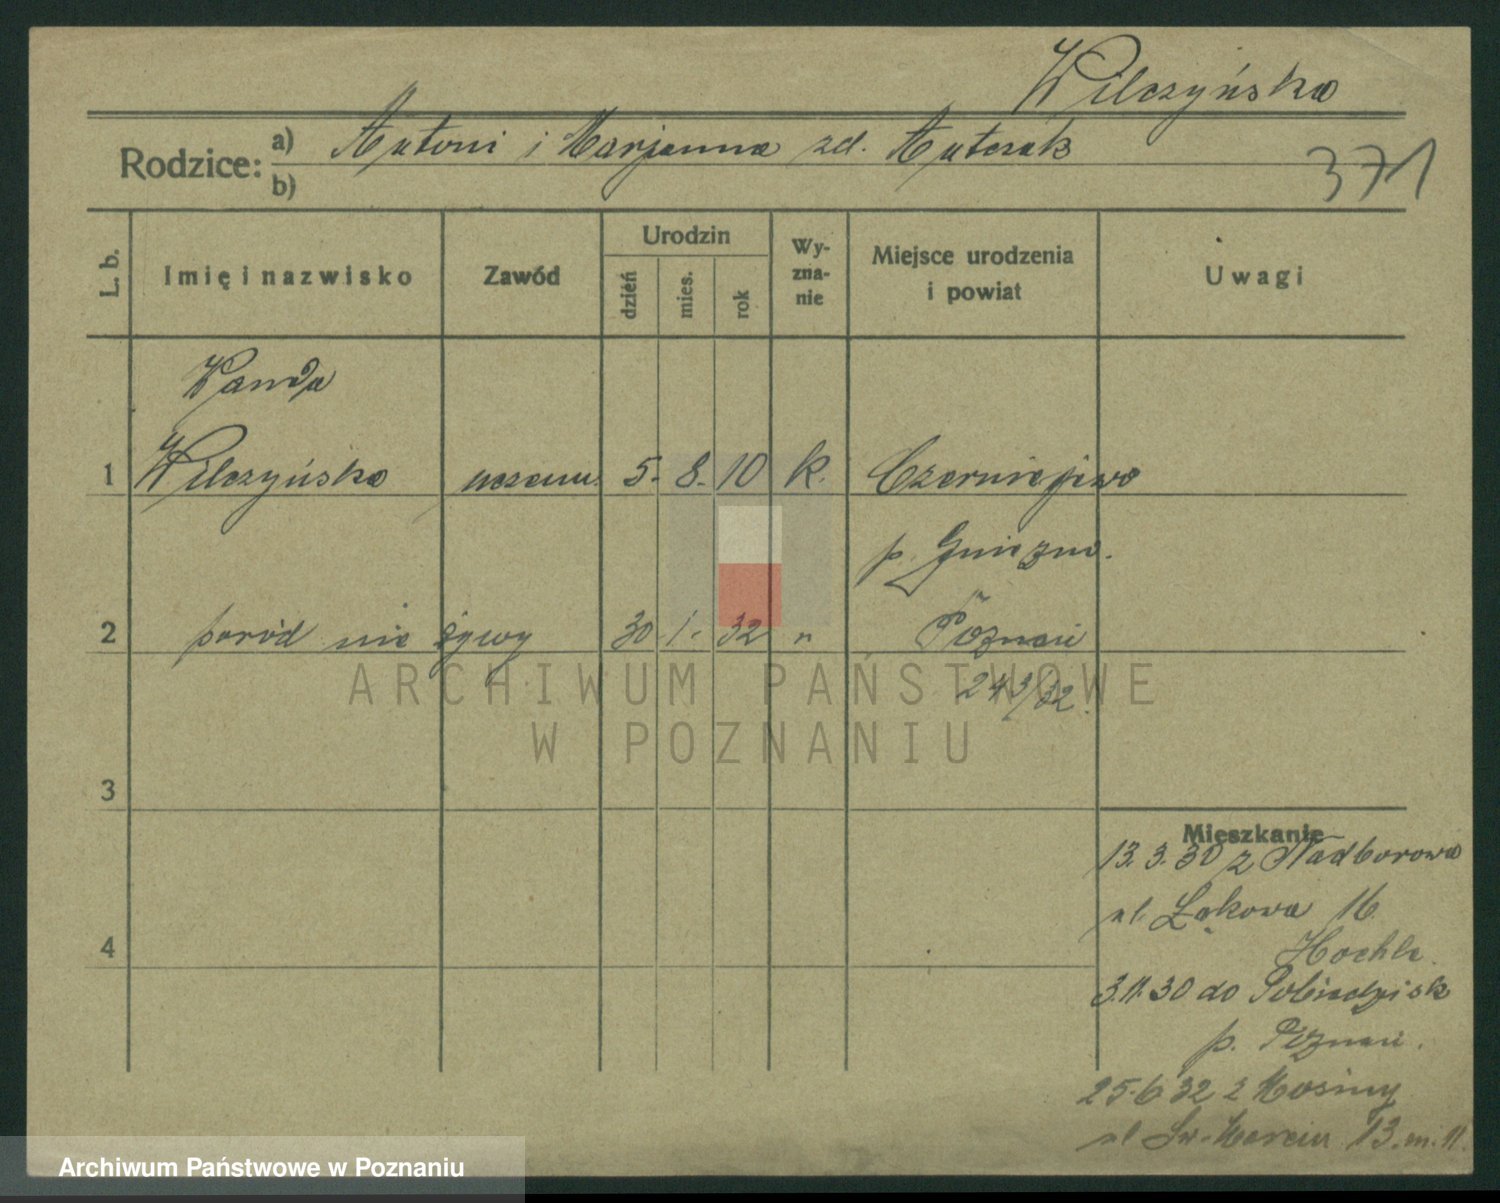 Wilczyńska
Rodzice: a) Antoni i Marjanna zd. Antczak
b)
371
L. b. Imię i nazwisko Zawód Urodzin dzień mies. rok Wy-zna-nie Miejsce urodzenia i powiat Uwagi
Wanda
1 Wilczyńska uczenn. 5. 8. 10 k. Czerniejewo
p. Gniezno.
2 poród nie żywy 30 1. 32 " Poznań
243/32.
ARCHIWUM PAŃSTWOWE
W POZNANIU
3
Mieszkanie
13.3.30 z Nadborowa
ul. Łąkowa 16
4
3.11.30 do Pobiedzisk
p. Poznań.
25.6.32 z Mosiny
ul Św. Marcin 13. m. 11.
Archiwum Państwowe w Poznaniu